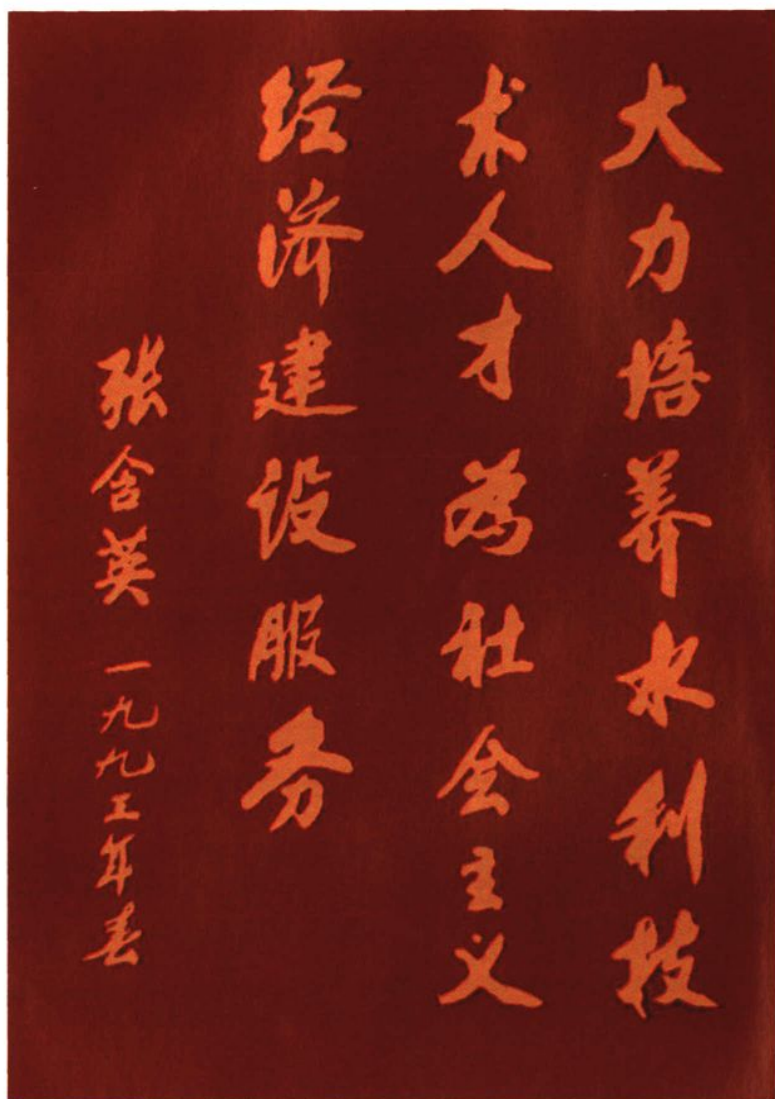 大力培养水利技
术人才为社会主义
经济建设服务
张含英 一九九三年春